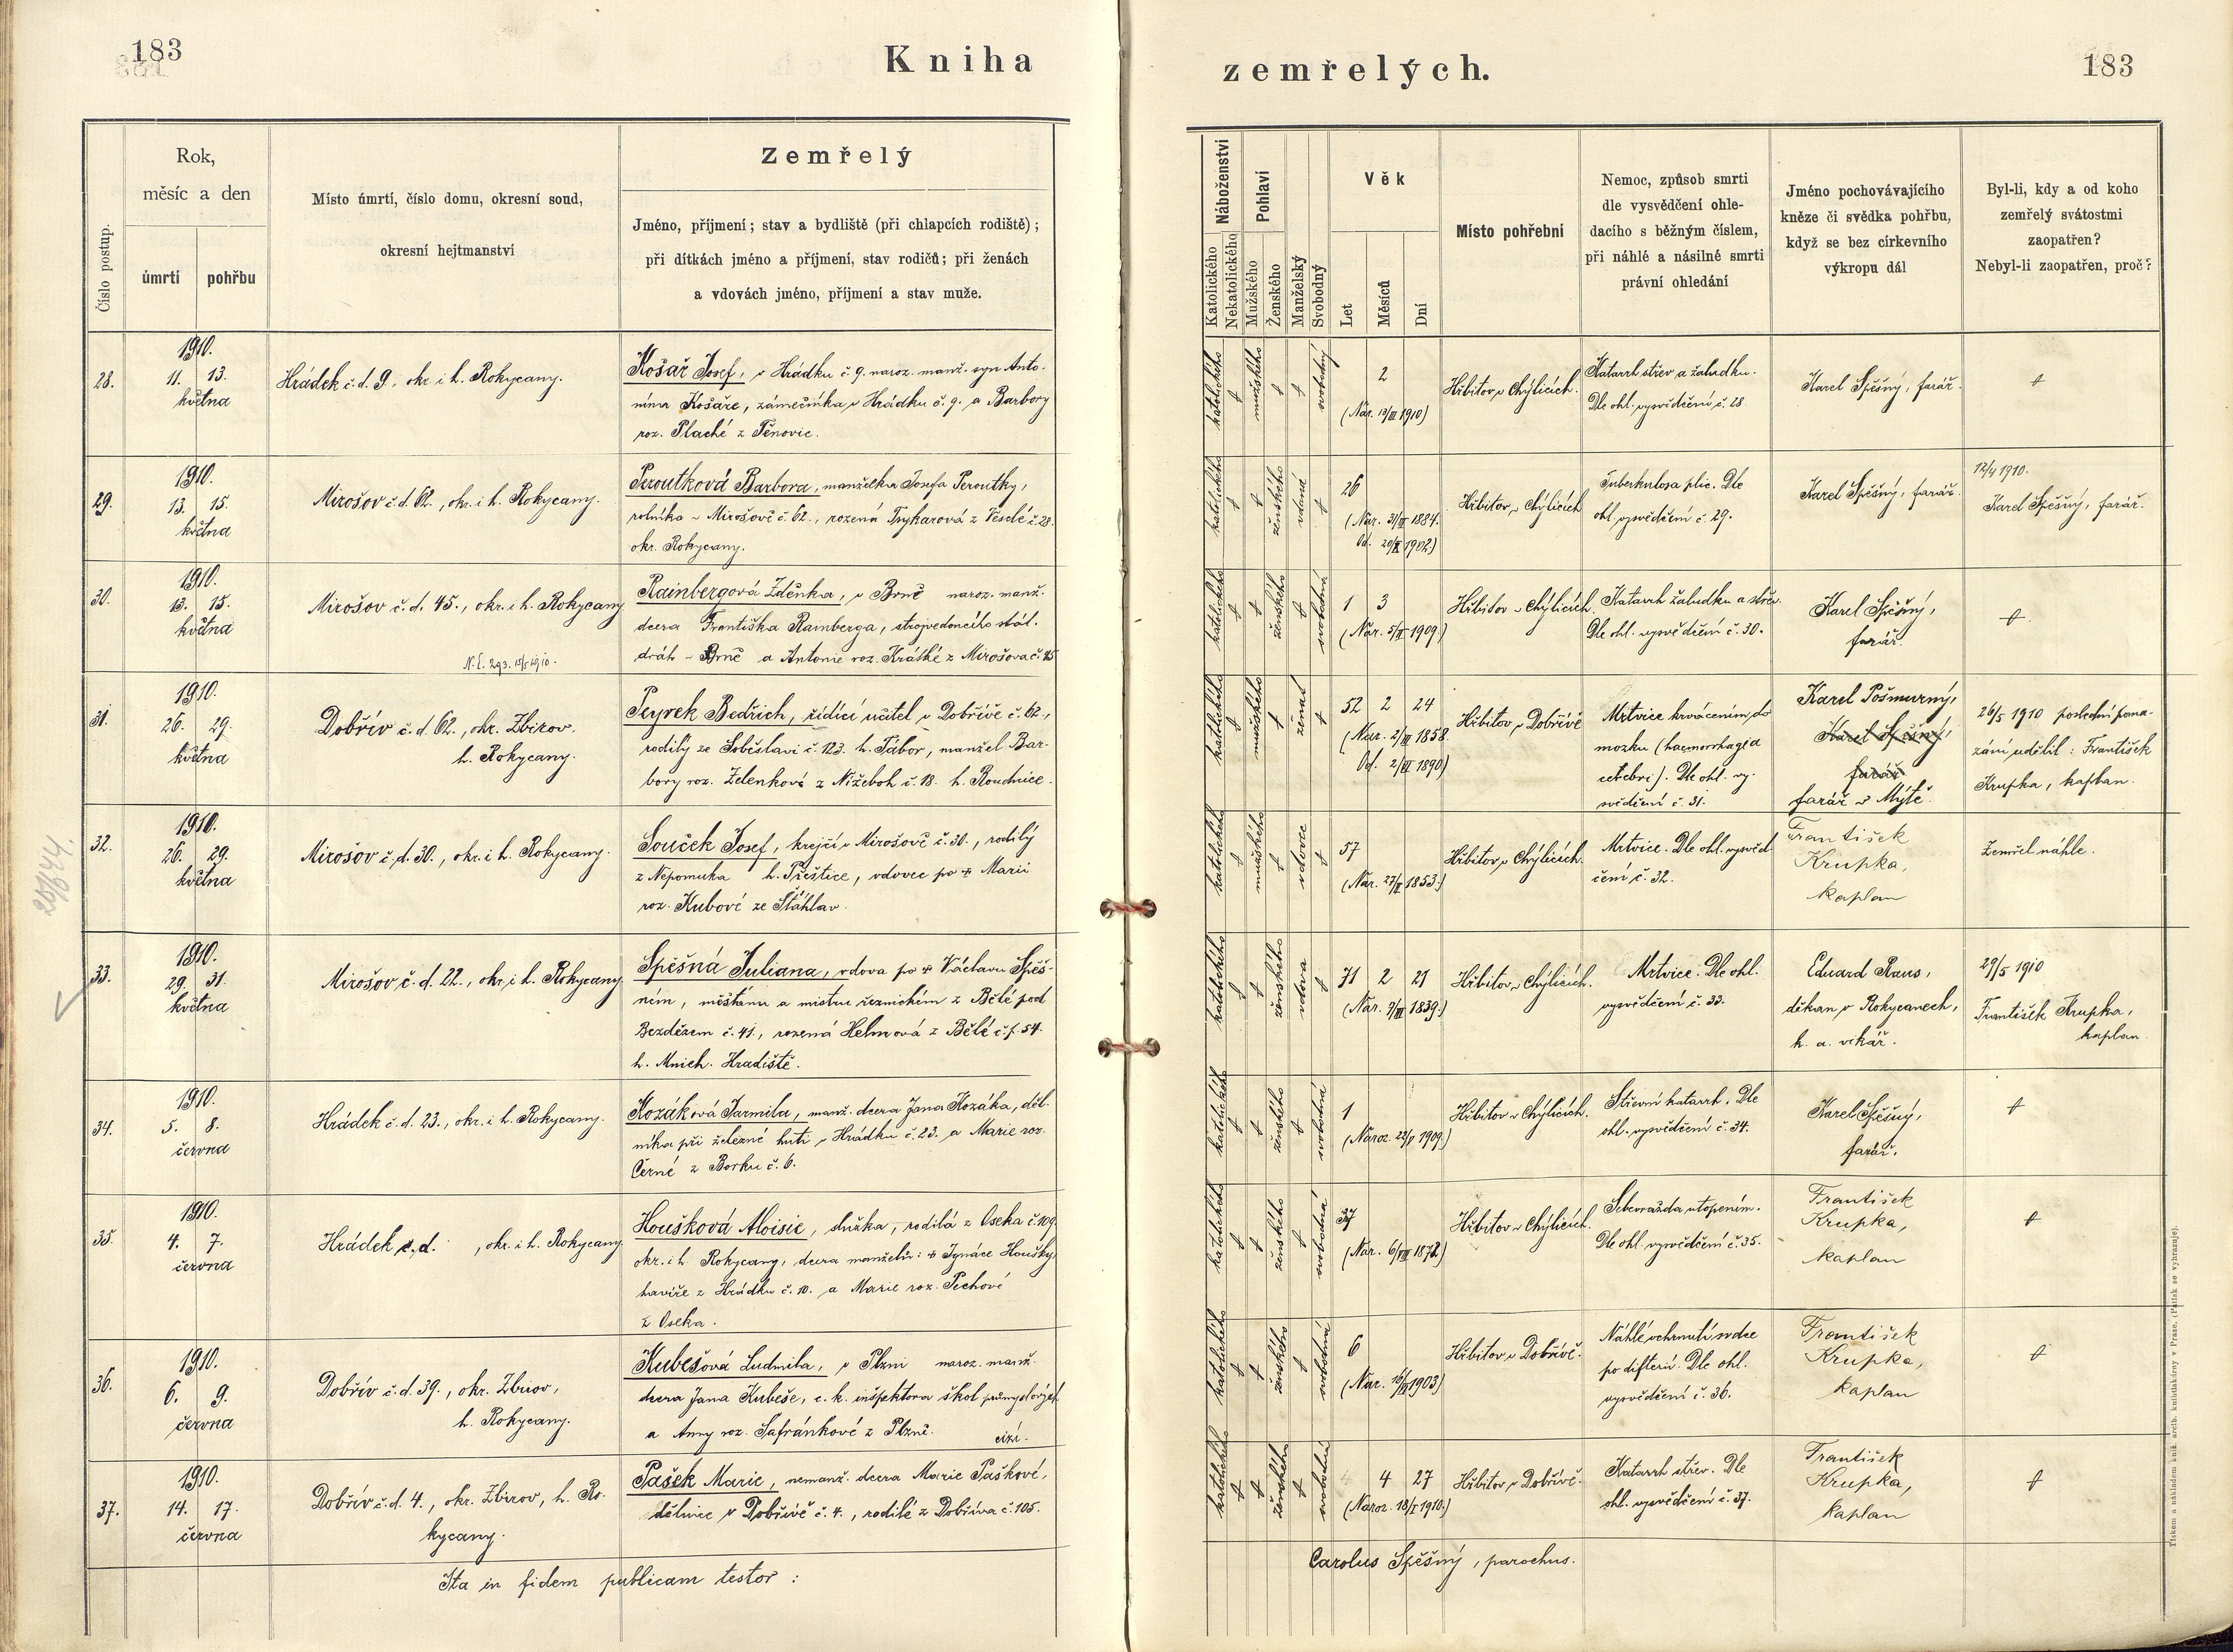 183
Kniha
zemřelých.
183
Číslo postup.
Rok,
měsíc a den
úmrtí
pohřbu
Místo úmrtí, číslo domu, okresní soud,
okresní hejtmanství
Zemřelý
Jméno, příjmení; stav a bydliště (při chlapcích rodiště);
při dítkách jméno a příjmení, stav rodičů; při ženách
a vdovách jméno, příjmení a stav muže.
Náboženství
Katolického
Nekatolického
Pohlaví
Mužského
Ženského
Manželský
Svobodný
Věk
Let
Měsíců
Dní
Místo pohřební
Nemoc, způsob smrti
dle vysvědčení ohle-
dacího s běžným číslem,
při náhlé a násilné smrti
právní ohledání
Jméno pochovávajícího
kněze či svědka pohřbu,
když se bez církevního
výkropu dál
Byl-li, kdy a od koho
zemřelý svátostmi
zaopatřen?
Nebyl-li zaopatřen, proč?
28.
1910.
11. 13.
května
Hrádek č. d. 9, okr. i h. Rokycany.
Košař Josef, v Hrádku č. 9. naroz. manž. syn Anto-
nína Košaře, zámečníka v Hrádku č. 9. a Barbory
roz. Plaché z Těnovic.
katolického
mužského
svobodný
2
(Nar. 13/III 1910)
Hřbitov v Chýlicích.
Katarrh střev a žaludku.
Dle ohl. vysvědčení č. 28.
Karel Spěšný, farář.
29.
1910.
13. 15.
května
Mirošov č. d. 62., okr. i h. Rokycany.
Peroutková Barbora, manželka Josefa Peroutky,
rolníka v Mirošově č. 62., rozená Trykarová z Veselé č. 28.
okr. Rokycany.
katolického
ženského
vdaná
26
1884.
1902)
Hřbitov v Chýlicích
Tuberkulosa plic. Dle
ohl. vysvědčení č. 29.
Karel Spěšný, farář.
12/4 1910.
Karel Spěšný, farář.
30.
1910.
13. 15.
května
Mirošov č. d. 45., okr. i h. Rokycany
N. E. 293. 1910.
Rainbergová Zděnka, v Brně naroz. manž.
dcera Františka Rainberga, strojvedoucího stát.
drah v Brně a Antonie roz. Krátké z Mirošova č. 45
katolického
ženského
svobodná
1 3
1909.)
Hřbitov v Chýlicích.
Katarrh žaludku a střev.
Dle ohl. vysvědčení č. 30.
Karel Spěšný,
farář.
31.
1910.
26. 29.
května
Dobřív č. d. 62., okr. Zbirov.
h. Rokycany.
Peyrek Bedřich, řídící učitel v Dobřívě č. 62.,
rodilý ze Soběslavi č. 123. h. Tábor, manžel Bar-
bory roz. Zelenkové z Nížeboh č. 18. h. Roudnice.
katolického
mužského
ženat
52 2 24
(Nar. 2/III 1858.
Od. 2/VI 1890)
Hřbitov v Dobřívě
Mrtvice krvácením do
mozku (haemorrhagia
cerebri). Dle ohl. vy-
svědčení č. 31.
Karel Pošmurný,
Karel Spěšný,
farář
farář v Mýtě.
26/5 1910 poslední poma-
zání udělil: František
Krupka, kaplan.
32.
1910.
26. 29.
května
Mirošov č. d. 30., okr. i h. Rokycany.
Souček Josef, krejčí v Mirošově č. 30., rodilý
z Nepomuka h. Přeštice, vdovec po † Marii
roz. Kubové ze Šťáhlav.
katolického
mužského
vdovec
57
1853.)
Hřbitov v Chýlicích.
Mrtvice. Dle ohl. vysvěd-
čení č. 32.
František
Krupka,
kaplan
Zemřel náhle.
33.
1910.
29. 31.
května
Mirošov č. d. 22., okr. i h. Rokycany
Spěšná Juliana, vdova po † Václavu Spěš-
ném, měšťanu a mistru řeznickém z Bělé pod
Bezdězem č. 41, rozená Helmová z Bělé č. p. 54.
h. Mnich. Hradiště.
katolického
ženského
vdova
71 2 21
1839.)
Hřbitov v Chýlicích.
Mrtvice. Dle ohl.
vysvědčení č. 33.
Eduard Raus,
děkan v Rokycanech,
h. a. vikář.
29/5 1910
František Krupka,
kaplan.
34.
1910.
5. 8.
června
Hrádek č. d. 23., okr. i h. Rokycany.
Kozáková Jarmila, manž. dcera Jana Kozáka, děl-
níka při železné huti v Hrádku č. 23. a Marie roz.
Černé z Borku č. 6.
katolického
ženského
svobodná
1
(Naroz. 22/V 1909.)
Hřbitov v Chýlicích.
Střevní katarrh. Dle
ohl. vysvědčení č. 34.
Karel Spěšný,
farář.
35.
1910.
4. 7.
června
Hrádek č. d. , okr. i h. Rokycany
Houšková Aloisie, služka, rodilá z Oseka č. 109.
okr. i h. Rokycany, dcera manželů: † Ignáce Houšky,
havíře z Hrádku č. 10. a Marie roz. Pechové
z Oseka.
katolického
ženského
svobodná
37
(Nar. 6/VIII 1872.)
Hřbitov v Chýlicích.
Sebevražda utopením.
Dle ohl. vysvědčení č. 35.
František
Krupka,
kaplan
36.
1910.
6. 9.
června
Dobřív č. d. 39., okr. Zbirov,
h. Rokycany.
Kubešová Ludmila, v Plzni naroz. manž.
dcera Jana Kubeše, c. k. inšpektora škol průmyslových
a Anny roz. Šafránkové z Plzně. cizí.
katolického
ženského
svobodná
6
1903)
Hřbitov v Dobřívě.
Náhlé ochrnutí srdce
po difterii. Dle ohl.
vysvědčení č. 36.
František
Krupka,
kaplan
37.
1910.
14. 17.
června
Dobřív č. d. 4., okr. Zbirov, h. Ro-
kycany.
Pašek Marie, nemanž. dcera Marie Paškové,
dělnice v Dobřívě č. 4., rodilé z Dobříva č. 105.
katolického
ženského
svobodná
4 27
(Naroz. 18/I 1910.)
Hřbitov v Dobřívě.
Katarrh střev. Dle
ohl. vysvědčení č. 37.
František
Krupka,
kaplan
Ita in fidem publicam testor:
Carolus Spěšný, parochus.